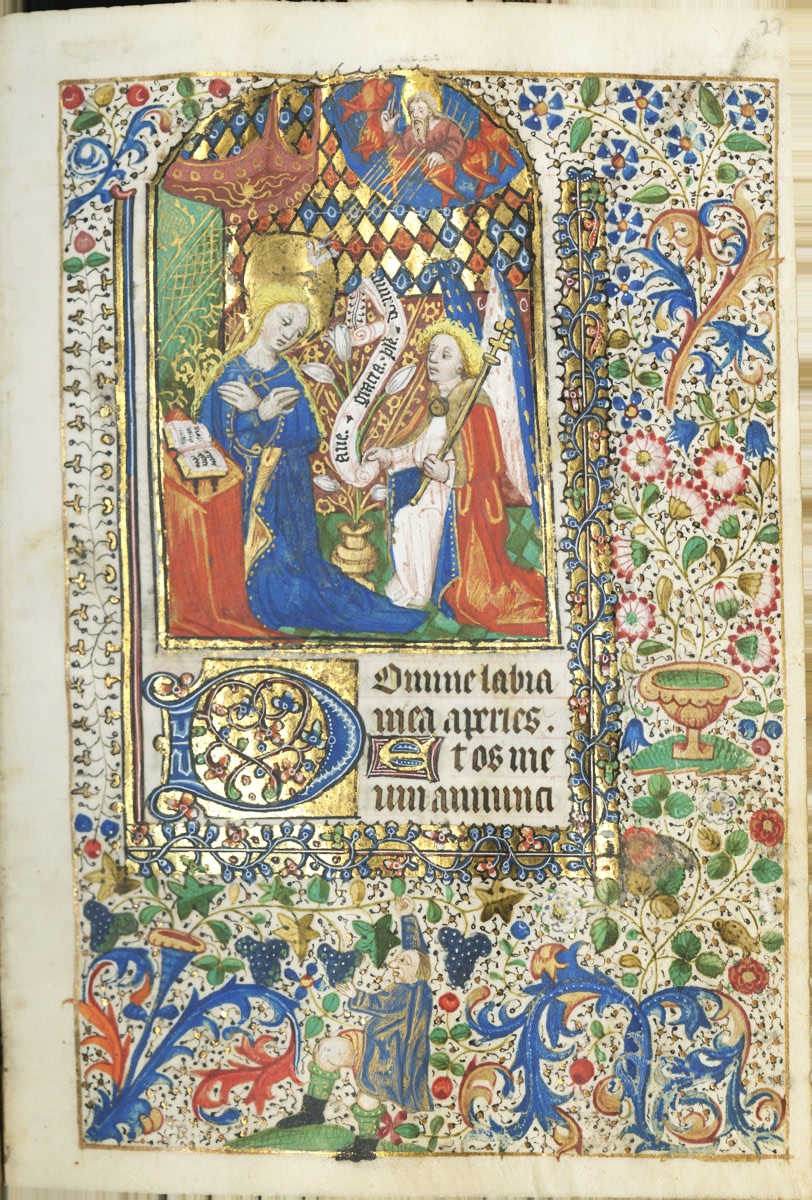 27
aue. gracia. ple.
Domine labia
mea aperies.
Et os me
um annunci